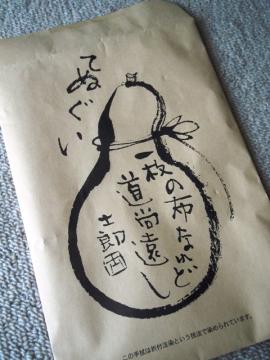 てぬぐい
一枚の布なれど
道尚遠し
士郎画
この手拭は折付注染という技法で染められています。